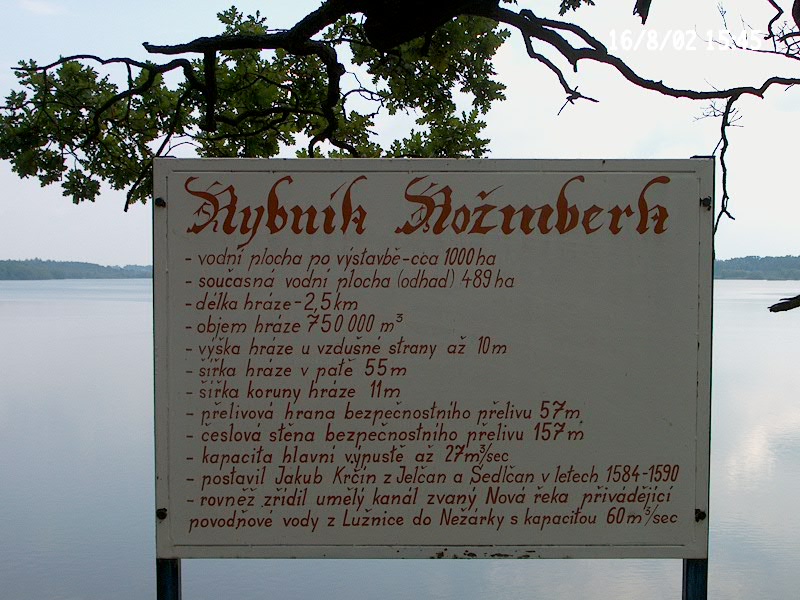 16/8/02 15:45
Rybník Rožmberk
- vodní plocha po výstavbě-cca 1000 ha
- současná vodní plocha (odhad) 489 ha
- délka hráze - 2,5 km
- objem hráze 750 000 m³
- výška hráze u vzdušné strany až 10 m
- šířka hráze v patě 55 m
- šířka koruny hráze 11 m
- přelivová hrana bezpečnostního přelivu 57 m
- česlová stěna bezpečnostního přelivu 157 m
- kapacita hlavní výpustě až 27 m³/sec
- postavil Jakub Krčín z Jelčan a Sedlčan v letech 1584-1590
- rovněž zřídil umělý kanál zvaný Nová řeka přivádějící
povodňové vody z Lužnice do Nežárky s kapacitou 60 m³/sec